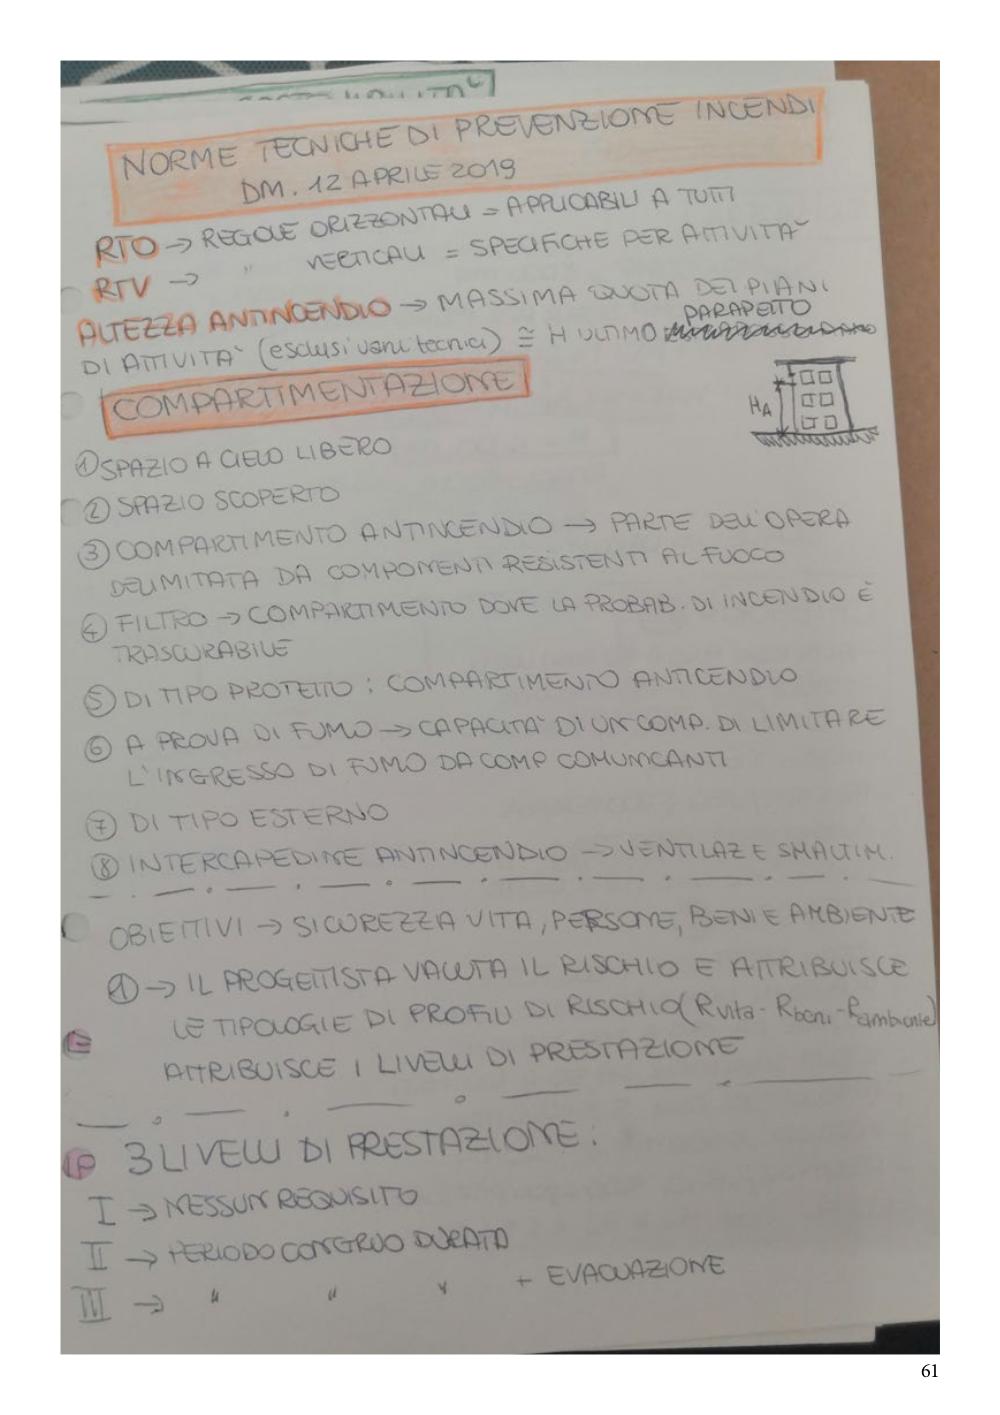 NORME TECNICHE DI PREVENZIONE INCENDI
DM. 12 APRILE 2019
RTO → REGOLE ORIZZONTALI = APPLICABILI A TUTTI
RTV → " VERTICALI = SPECIFICHE PER ATTIVITA'
ALTEZZA ANTINCENDIO → MASSIMA QUOTA DEI PIANI
DI ATTIVITA' (esclusi vani tecnici) ≅ H ULTIMO PARAPETTO
HA
COMPARTIMENTAZIONE
① SPAZIO A CIELO LIBERO
② SPAZIO SCOPERTO
③ COMPARTIMENTO ANTINCENDIO → PARTE DELL'OPERA
DELIMITATA DA COMPONENTI RESISTENTI AL FUOCO
④ FILTRO → COMPARTIMENTO DOVE LA PROBAB. DI INCENDIO È
TRASCURABILE
⑤ DI TIPO PROTETTO : COMPARTIMENTO ANTICENDIO
⑥ A PROVA DI FUMO → CAPACITA' DI UN COMP. DI LIMITARE
L'INGRESSO DI FUMO DA COMP COMUNICANTI
⑦ DI TIPO ESTERNO
⑧ INTERCAPEDINE ANTINCENDIO → VENTILAZ E SMALTIM.
OBIETTIVI → SICUREZZA VITA, PERSONE, BENI E AMBIENTE
① → IL PROGETTISTA VALUTA IL RISCHIO E ATTRIBUISCE
LE TIPOLOGIE DI PROFILI DI RISCHIO (Rvita - Rbeni - Rambiente)
ATTRIBUISCE I LIVELLI DI PRESTAZIONE
3 LIVELLI DI PRESTAZIONE :
I → NESSUN REQUISITO
II → PERIODO CONGRUO DURATA
III → " " " + EVACUAZIONE
61